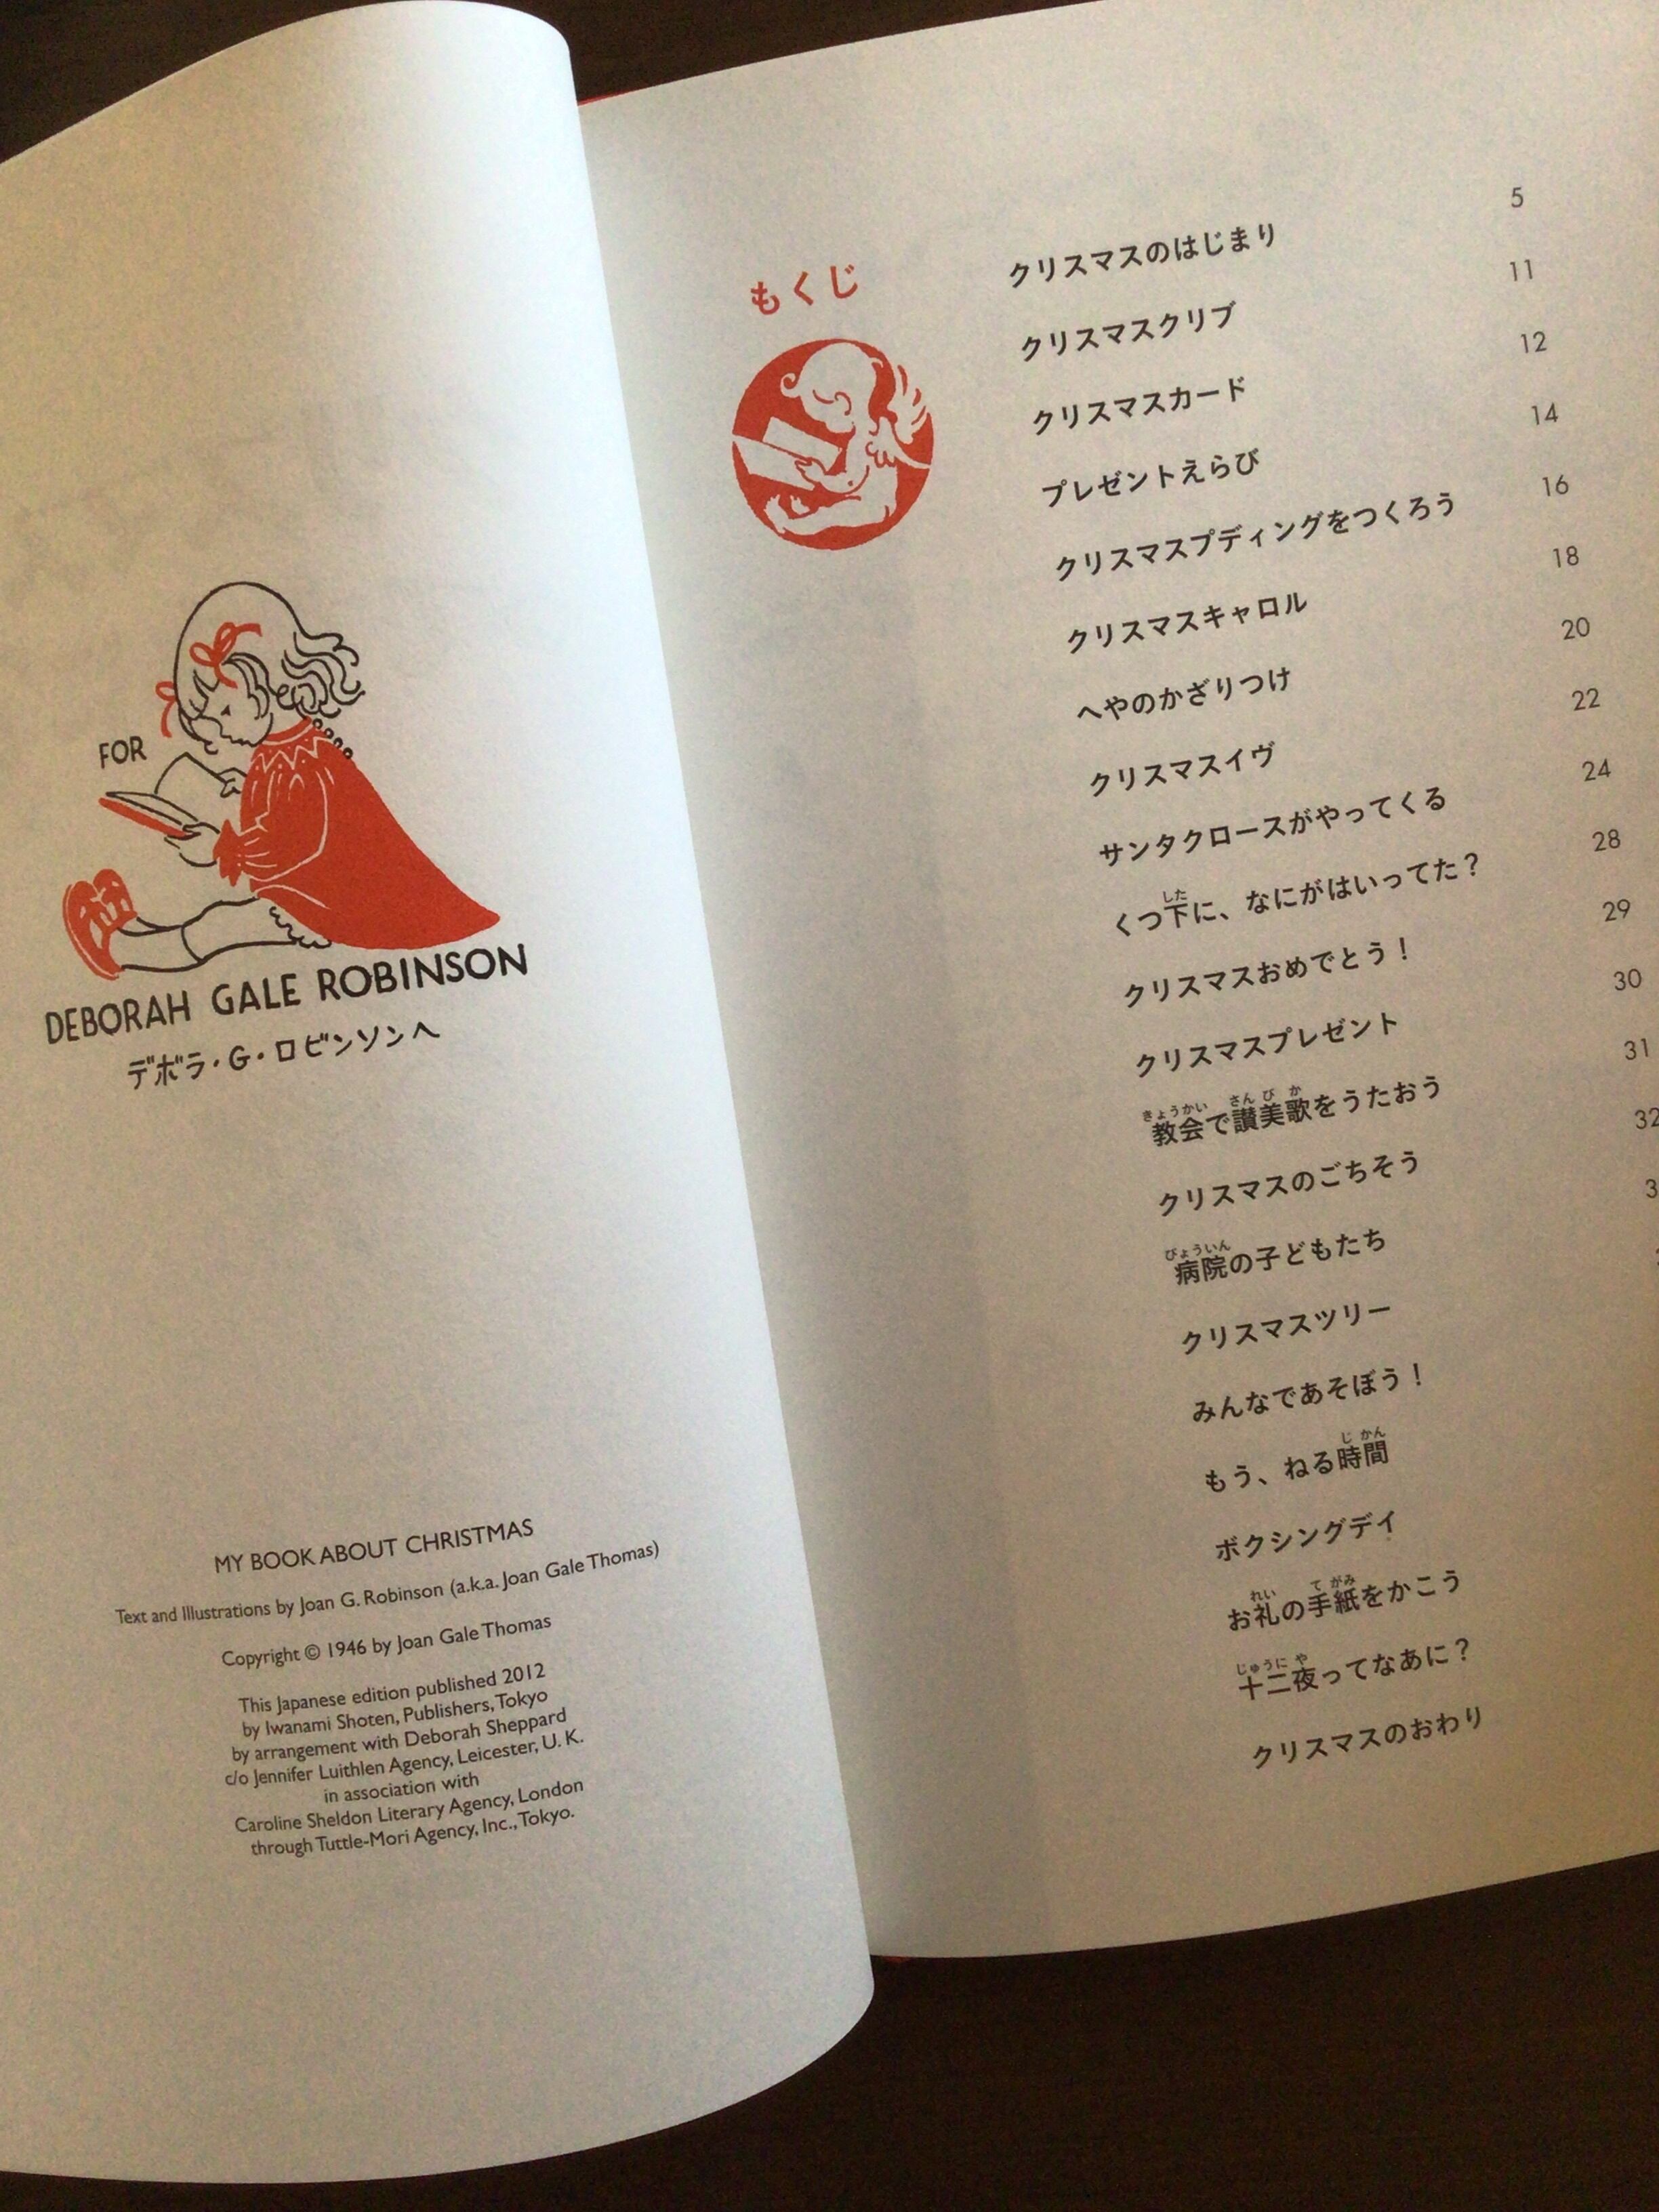 FOR
DEBORAH GALE ROBINSON
デボラ・G・ロビンソンへ
MY BOOK ABOUT CHRISTMAS
Text and Illustrations by Joan G. Robinson (a.k.a. Joan Gale Thomas)
Copyright © 1946 by Joan Gale Thomas
This Japanese edition published 2012
by Iwanami Shoten, Publishers, Tokyo
by arrangement with Deborah Sheppard
c/o Jennifer Luithlen Agency, Leicester, U. K.
in association with
Caroline Sheldon Literary Agency, London
through Tuttle-Mori Agency, Inc., Tokyo.
もくじ
クリスマスのはじまり 5
クリスマスクリブ 11
クリスマスカード 12
プレゼントえらび 14
クリスマスプディングをつくろう 16
クリスマスキャロル 18
へやのかざりつけ 20
クリスマスイヴ 22
サンタクロースがやってくる 24
した
くつ下に、なにがはいってた？ 28
クリスマスおめでとう！ 29
クリスマスプレゼント 30
きょうかい さん び か
教会で讃美歌をうたおう 31
クリスマスのごちそう 32
びょういん
病院の子どもたち
クリスマスツリー
みんなであそぼう！
じ かん
もう、ねる時間
ボクシングデイ
れい て がみ
お礼の手紙をかこう
じゅうに や
十二夜ってなあに？
クリスマスのおわり